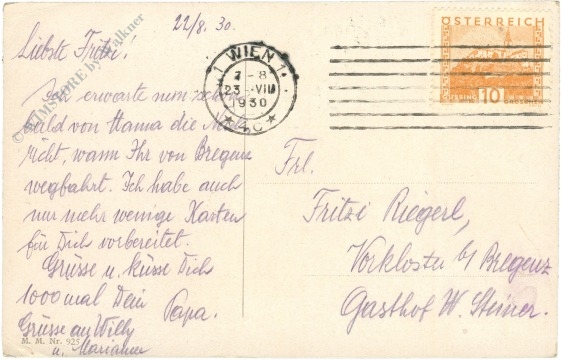 22/8. 30.
Liebste Fritzi!
Ich erwarte nun schon
bald von Mama die Nach
richt, wann Ihr von Bregenz
wegfahrt. Ich habe auch
nur mehr wenige Karten
für Dich vorbereitet.
Grüsse u. küsse Dich
1000 mal Dein
Papa.
Grüsse an Willy
u. Marianne
M. M. Nr. 925
1 WIEN 1
7-8
23. VIII
1930
* 4c *
ÖSTERREICH
GÜSSING 10 GROSCHEN
Frl.
Fritzi Riegerl,
Vorkloster b/ Bregenz
Gasthof W. Steiner.
by Walkner